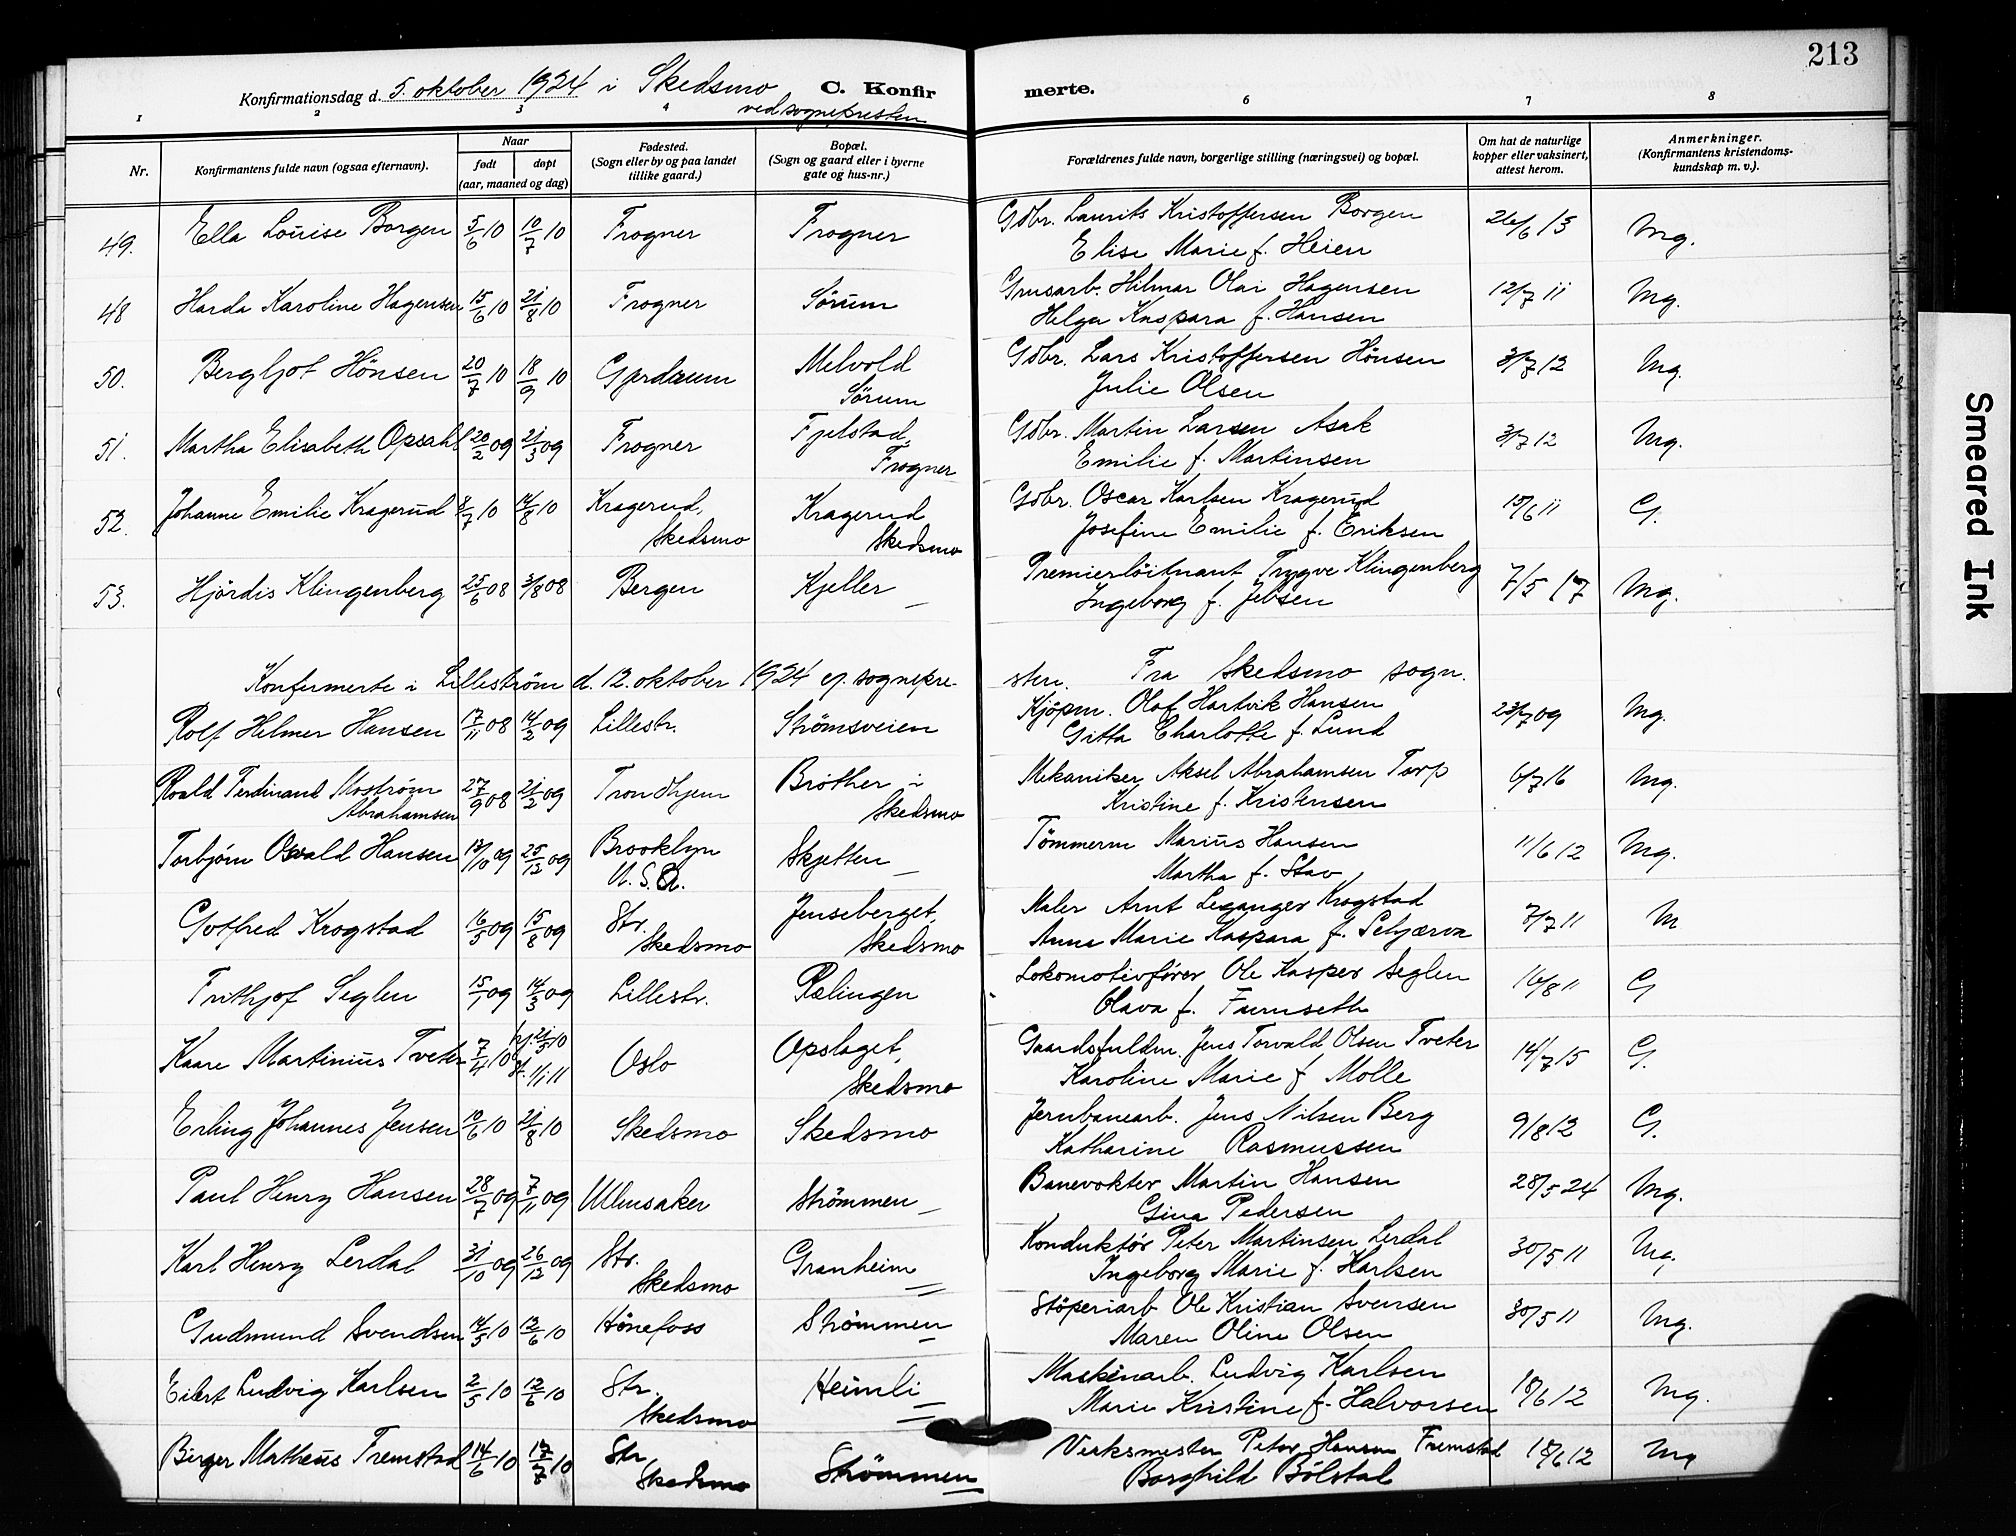 213
Konfirmationsdag d. 5. oktober 1924 i Skedsmo C. Konfirmerte.
ved sognepresten
1 2 3 4 6 7 8
Nr. Konfirmantens fulde navn (ogsaa efternavn). Naar født døpt (aar, maaned og dag) Fødested. (Sogn eller by og paa landet tillike gaard.) Bopæl. (Sogn og gaard eller i byerne gate og hus-nr.) Forældrenes fulde navn, borgerlige stilling (næringsvei) og bopæl. Om hat de naturlige kopper eller vaksinert, attest herom. Anmerkninger. (Konfirmantens kristendoms-kundskap m. v.).
49. Ella Louise Borgen 5/6 10 10/7 10 Frogner Frogner Gdbr. Laurits Kristoffersen Borgen 26/6 13 Mg.
Elise Marie f. Heien
48 Harda Karoline Hagensen 15/6 10 21/8 10 Frogner Sørum Grusarb. Hilmar Olai Hagensen 12/7 11 Mg.
Helga Kaspara f. Hansen
50. Bergljot Hönsen 20/7 10 18/9 10 Gjerdrum Melvold Gdbr. Lars Kristoffersen Hönsen 3/7 12 Mg.
Sörum Julie Olsen
51. Martha Elisabeth Opsahl 20/2 09 21/3 09 Frogner Fjelstad, Gdbr. Martin Larsen Asak 3/7 12 Mg.
Frogner Emilie f. Martinsen
52. Johanne Emilie Kragerud 8/7 10 14/8 10 Kragerud, Kragerud Gdbr. Oscar Karlsen Kragerud 15/6 11 G.
Skedsmo Skedsmo Josefine Emilie f. Eriksen
53. Hjördis Klingenberg 25/6 08 3/8 08 Bergen Kjeller Premierlöitnant Trygve Klingenberg 7/5 17 Mg.
Ingeborg f. Jebsen
Konfermerte i Lilleström d. 12. oktober 1924 af sognepresten. Fra Skedsmo sogn.
Rolf Helmer Hansen 17/11 08 14/2 09 Lillestr. Strömsveien Kjöpm. Olaf Hartvik Hansen 23/7 09 Mg.
Gitta Charlotte f. Lund
Roald Ferdinand Moström 27/9 08 21/2 09 Trondhjem Bröther i Mekaniker Aksel Abrahamsen Torp 6/7 16 Mg.
Abrahamsen Skedsmo Kristine f. Kristensen
Torbjörn Oswald Hansen 13/10 09 25/12 09 Brooklyn Skjetten Tömmerm Marius Hansen 11/6 12 Mg.
U.S.A. Martha f. Stav
Gotfred Krogstad 16/5 09 15/8 09 Str. Jenseberget, Maler Arnt Leganger Krogstad 7/7 11 M
Skedsmo Skedsmo Anna Marie Kaspara f.
Frithjof Seglen 15/1 09 14/3 09 Lillestr. Rælingen Lokomotivförer Ole Kasper Seglen 16/8 11 G
Olava f. Furuseth
Kaare Martinius Tveter 7/4 10 hj. 21/5 10 Oslo Opslaget, Gaardsfuldm. Jens Torvald Olsen Tveter 14/7 15 G.
st. 1/1 11 Skedsmo Karoline Marie f Molle
Erling Johannes Jensen 10/6 10 21/8 10 Skedsmo Skedsmo Jernbanearb. Jens Nilsen Berg 9/8 12 G.
Katharine Rasmussen
Paul Henry Hansen 28/7 09 7/11 09 Ullensaker Strömmen Banevokter Martin Hansen 28/5 24 Mg.
Gina Pedersen
Karl Henry Lerdal 31/10 09 26/12 09 Str. Granheim Konduktör Peter Martinsen Lerdal 30/5 11 Mg.
Skedsmo Ingeborg Marie f. Karlsen
Gudmund Svendsen 14/5 10 12/6 10 Hönefoss Strömmen Stöperiarb Ole Kristian Svensen 30/5 11 Mg.
Maren Oline Olsen
Eilert Ludvig Karlsen 2/5 10 12/6 10 Str. Heimli Maskinarb. Ludvig Karlsen 18/6 12 Mg.
Skedsmo Marie Kristine f. Halvorsen
Birger Matheus Fremstad 14/6 10 17/7 10 Str. Strömmen Verksmester Peter Hansen Fremstad 18/6 12 Mg
Skedsmo Borghild Bölstad
Smeared Ink